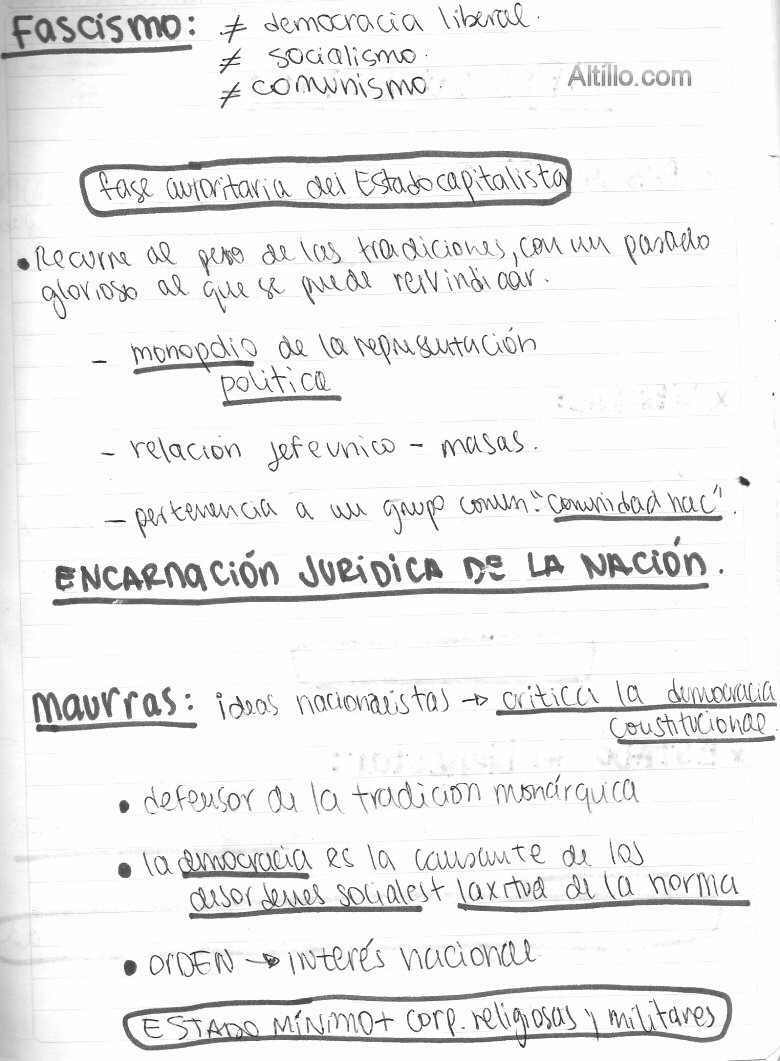 Fascismo: ≠ democracia liberal.
≠ socialismo.
≠ comunismo.
Altillo.com
fase autoritaria del Estado capitalista
• Recurre al peso de las tradiciones, con un pasado
glorioso al que se puede reivindicar.
- monopolio de la representación
política
- relación jefe unico - masas.
- pertenencia a un grupo comun: "comunidad nac".
ENCARNACIÓN JURÍDICA DE LA NACIÓN.
Maurras: ideas nacionalistas → critica la democracia
constitucional
• defensor de la tradicion monárquica
• la democracia es la causante de los
desordenes sociales + laxitud de la norma
• ORDEN → interés nacional
ESTADO MÍNIMO + corp. religiosas y militares